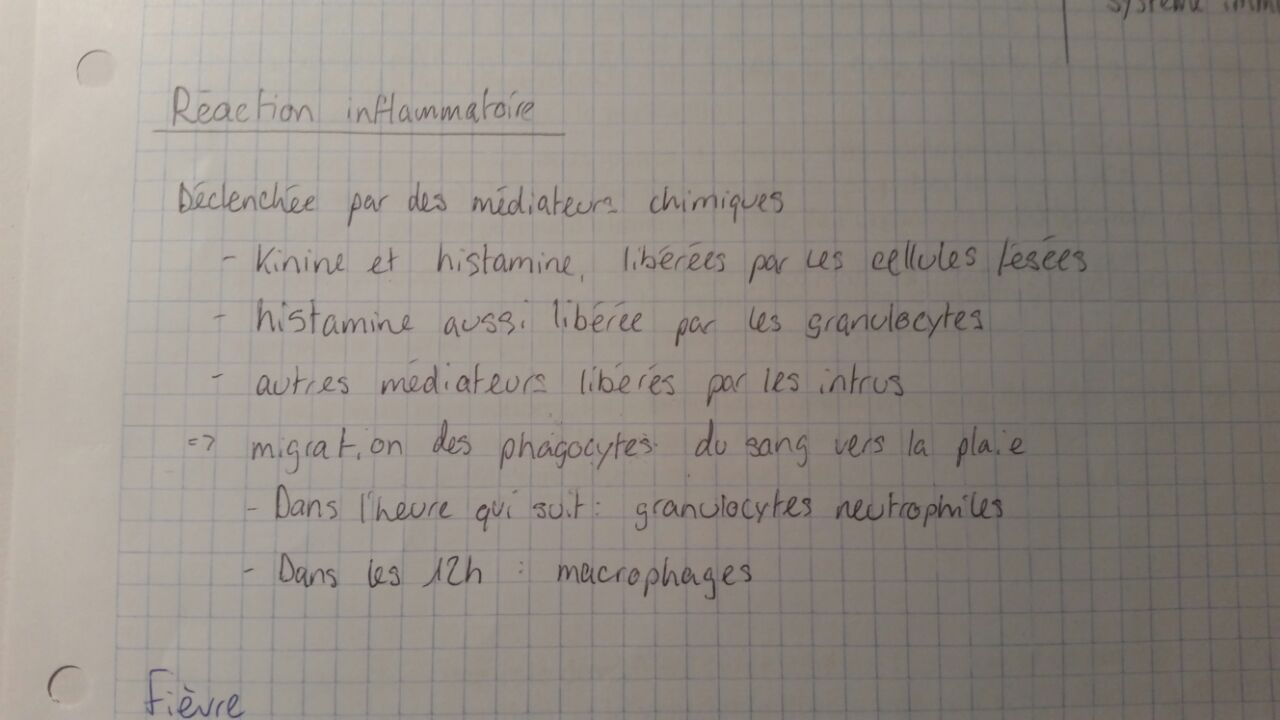 système imm
Réaction inflammatoire
Déclenchée par des médiateurs chimiques
- Kinine et histamine, libérées par les cellules lésées
- histamine aussi libérée par les granulocytes
- autres médiateurs libérés par les intrus
=> migration des phagocytes du sang vers la plaie
- Dans l'heure qui suit : granulocytes neutrophiles
- Dans les 12h : macrophages
Fièvre